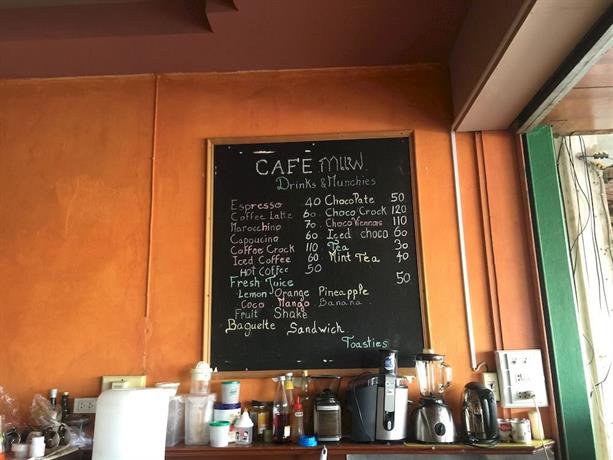 CAFÉ กาแฟ
Drinks & Munchies
Espresso 40
Coffee Latte 60
Marocchino 70
Capoucino 60
Coffee Crock 110
Iced Coffee 60
Hot Coffee 50
Chocolate 50
Choco Crock 120
Choco Viennois 110
Iced choco 60
Tea 30
Mint Tea 40
Fresh Juice 50
Lemon Orange Pineapple
Coco Mango Banana
Fruit Shake
Baguette Sandwich
Toasties